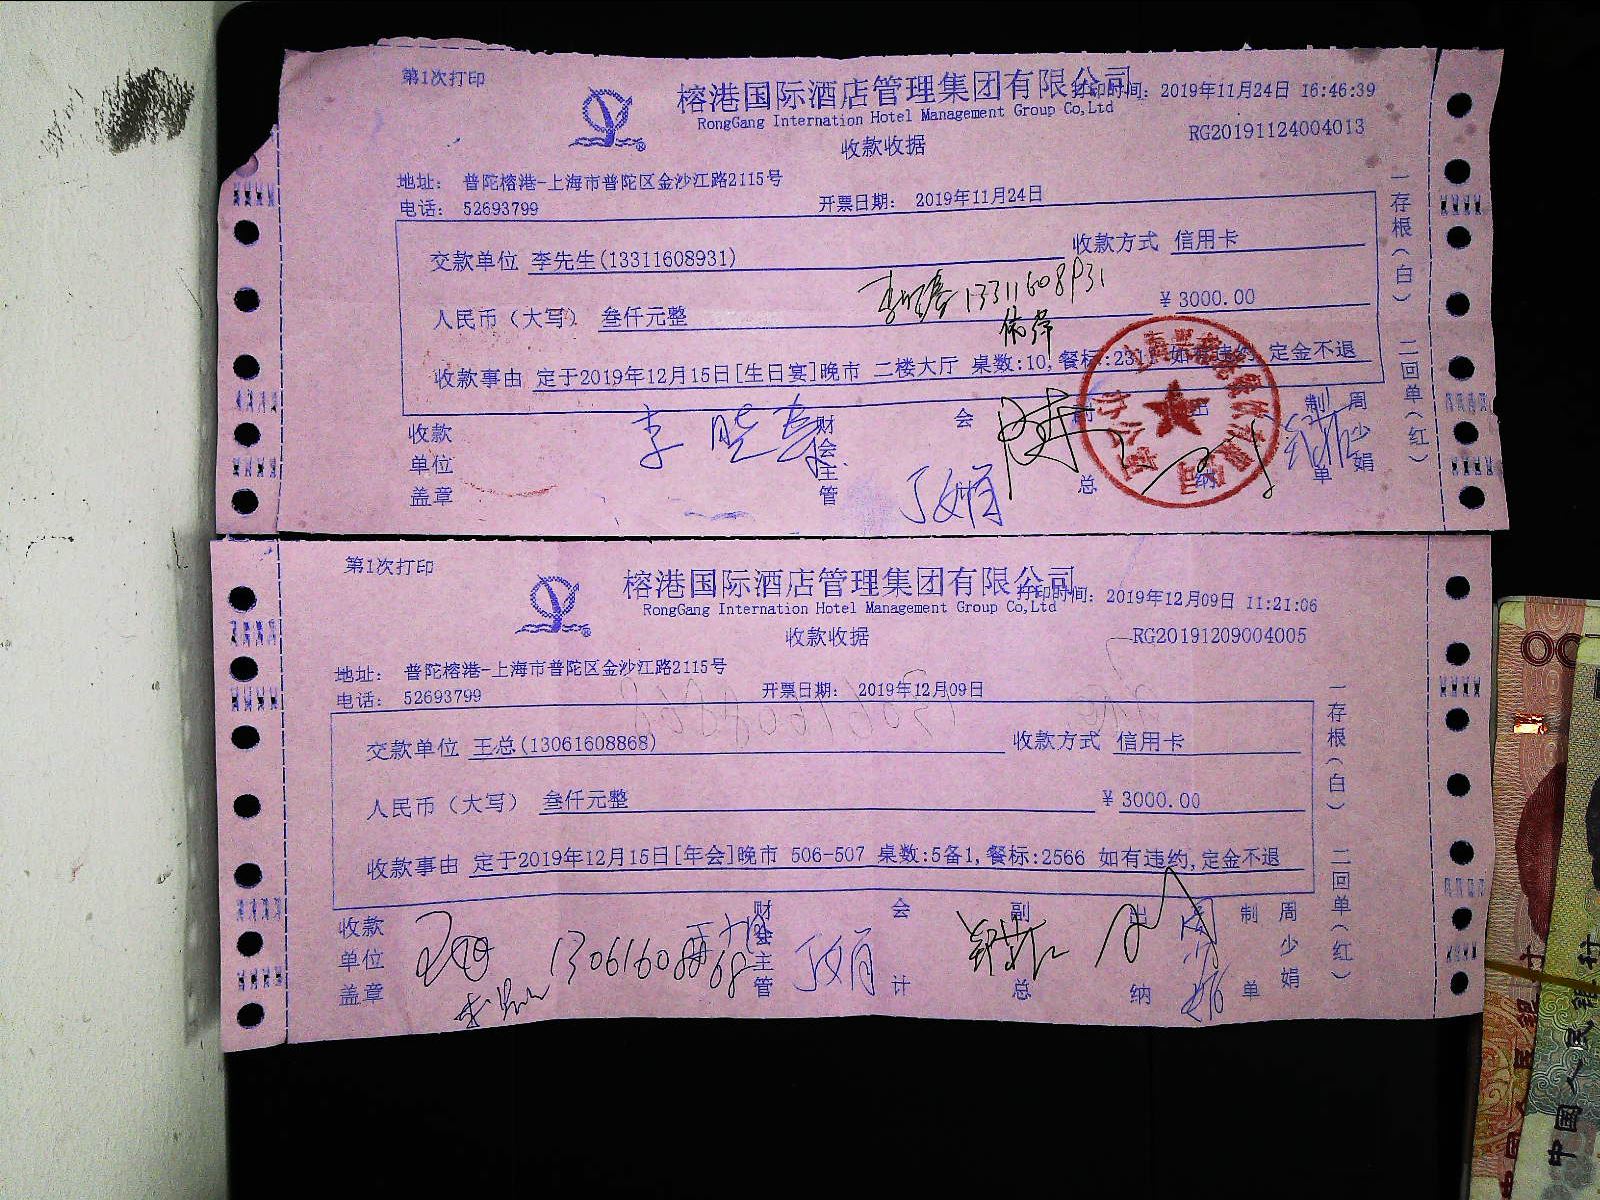 第1次打印
榕港国际酒店管理集团有限公司
打印时间：2019年11月24日 16:46:39
RongGang Internation Hotel Management Group Co,Ltd
收款收据
RG20191124004013
地址： 普陀榕港-上海市普陀区金沙江路2115号
电话： 52693799
开票日期： 2019年11月24日
交款单位 李先生(13311608931)
收款方式 信用卡
13311608931
人民币（大写） 叁仟元整
¥ 3000.00
收款事由 定于2019年12月15日[生日宴]晚市 二楼大厅 桌数:10,餐标:231 如有违约,定金不退
收款单位盖章
李
财会主管
丁娟
会
副总
出纳
制单
周少娟
一存根（白） 二回单（红）
第1次打印
榕港国际酒店管理集团有限公司
打印时间：2019年12月09日 11:21:06
RongGang Internation Hotel Management Group Co,Ltd
收款收据
RG20191209004005
地址： 普陀榕港-上海市普陀区金沙江路2115号
电话： 52693799
开票日期： 2019年12月09日
交款单位 王总(13061608868)
收款方式 信用卡
人民币（大写） 叁仟元整
¥ 3000.00
收款事由 定于2019年12月15日[年会]晚市 506-507 桌数:5备1,餐标:2566 如有违约,定金不退
收款单位盖章
13061608868
财会主管
丁娟
会计
副总
出纳
制单
周少娟
一存根（白） 二回单（红）
中國人民銀行